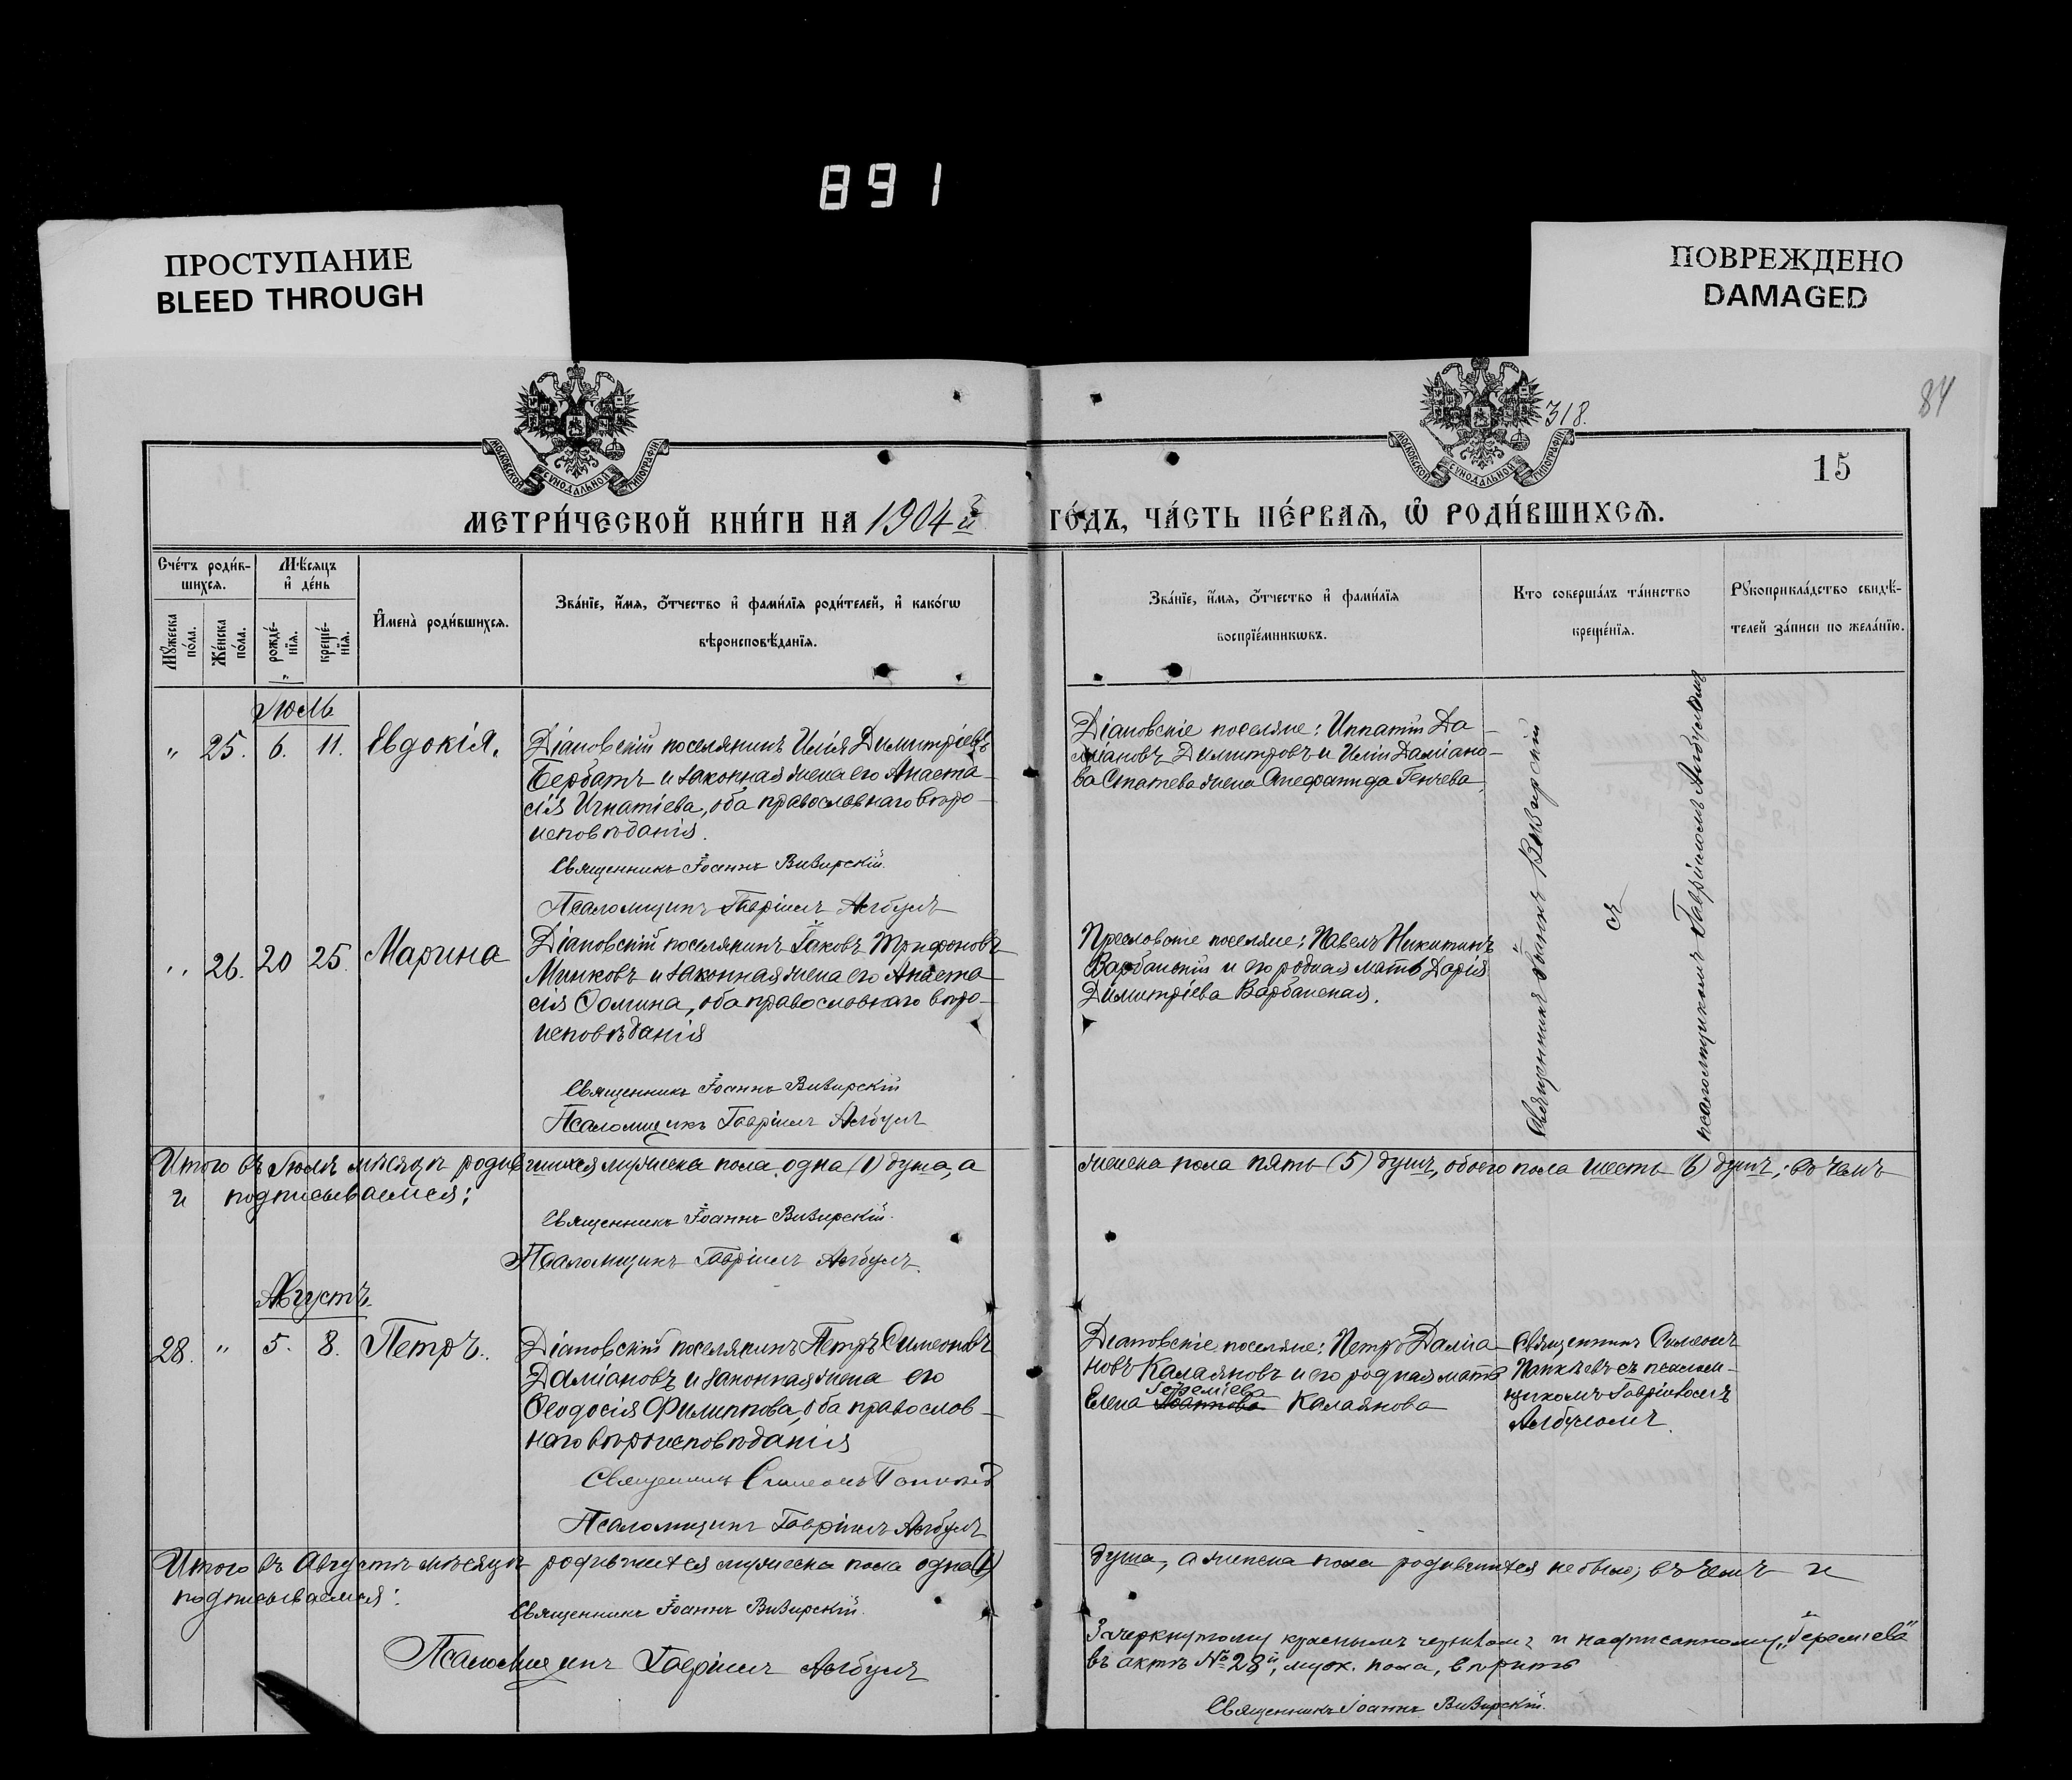 891
ПРОСТУПАНИЕ
BLEED THROUGH
ПОВРЕЖДЕНО
DAMAGED
84
318.
15
МОСКОВСКОЙ СѴНОДАЛЬНОЙ ТИПОГРАФІИ
МОСКОВСКОЙ СѴНОДАЛЬНОЙ ТИПОГРАФІИ
МЕТРИ́ЧЕСКОЙ КНИ́ГИ НА 1904й ГО́ДЪ, ЧА́СТЬ ПЕ́РВАѦ, Ѡ РОДИ́ВШИХСѦ.
Сче́тъ роди́в-
шихся.
Мѣ́сяцъ
и҆ де́нь
Мꙋ́жеска
по́ла.
Же́нска
по́ла.
рожде́-
нїѧ.
креще́-
нїѧ.
И҆мена̀ роди́вшихсѧ.
Зва́нїе, и҆́мѧ, ѻ҆́тчество и҆ фами́лїѧ роди́телей, и҆ како́гѡ
вѣроисповѣ́данїѧ.
Зва́нїе, и҆́мѧ, ѻ҆́тчество и҆ фами́лїѧ
воспрїе́мникѡвъ.
Кто соверша́лъ та́инство
креще́нїѧ.
Рꙋкоприкла́дство свидѣ́-
телей за́писи по жела́нїю.
Іюль
" 25. 6. 11. Евдокія.
Діановскій поселянинъ Илія Димитріевъ
Бербатъ и законная жена его Анаста-
сія Игнатіева, оба православнаго вѣро-
исповѣданія.
Священникъ Іоаннъ Визирскій.
Псаломщикъ Гавріилъ Албулъ
Діановскіе поселяне: Ипатій Да-
міановъ Димитровъ и Иліи Даміано-
ва Статева жена Стефанида Генчева
Священникъ Іоаннъ Визирскій
съ
псаломщикомъ Гавріиломъ Албуломъ
" 26. 20 25. Марина
Діановскій поселянинъ Іаковъ Трифоновъ
Минковъ и законная жена его Анаста-
сія Ѳомина, оба православнаго вѣро-
исповѣданія
Священникъ Іоаннъ Визирскій
Псаломщикъ Гавріилъ Албулъ
Преславскіе поселяне: Павелъ Никитинъ
Варбанскій и его родная мать Дарія
Димитріева Варбанская.
Итого въ Іюлѣ мѣсяцѣ родившихся мужеска пола одна (1) душа, а женска пола пять (5) душъ, обоего пола шесть (6) душъ; въ чемъ
и подписываемся:
Священникъ Іоаннъ Визирскій.
Псаломщикъ Гавріилъ Албулъ.
Августъ.
28. " 5. 8. Петръ.
Діановскій поселянинъ Петръ Симеоновъ
Даміановъ и законная жена его
Ѳеодосія Филиппова, оба православ-
наго вѣроисповѣданія
Священникъ Симеонъ
Псаломщикъ Гавріилъ Албулъ
Діановскіе поселяне: Петръ Даміа-
новъ Калаяновъ и его родная мать
Іереміева
Елена Іоаннова Калаянова
Священникъ Симеонъ
съ псалом-
щикомъ Гавріиломъ
Албуломъ.
Итого въ Августѣ мѣсяцѣ родившихся мужеска пола одна (1) душа, а женска пола родившихся не было; въ чемъ и
подписываемся:
Священникъ Іоаннъ Визирскій.
Псаломщикъ Гавріилъ Албулъ
Зачеркнутому краснымъ чернилами и надписанному „Іереміева"
въ актѣ № 28й, муж. пола, вѣрить
Священникъ Іоаннъ Визирскій.